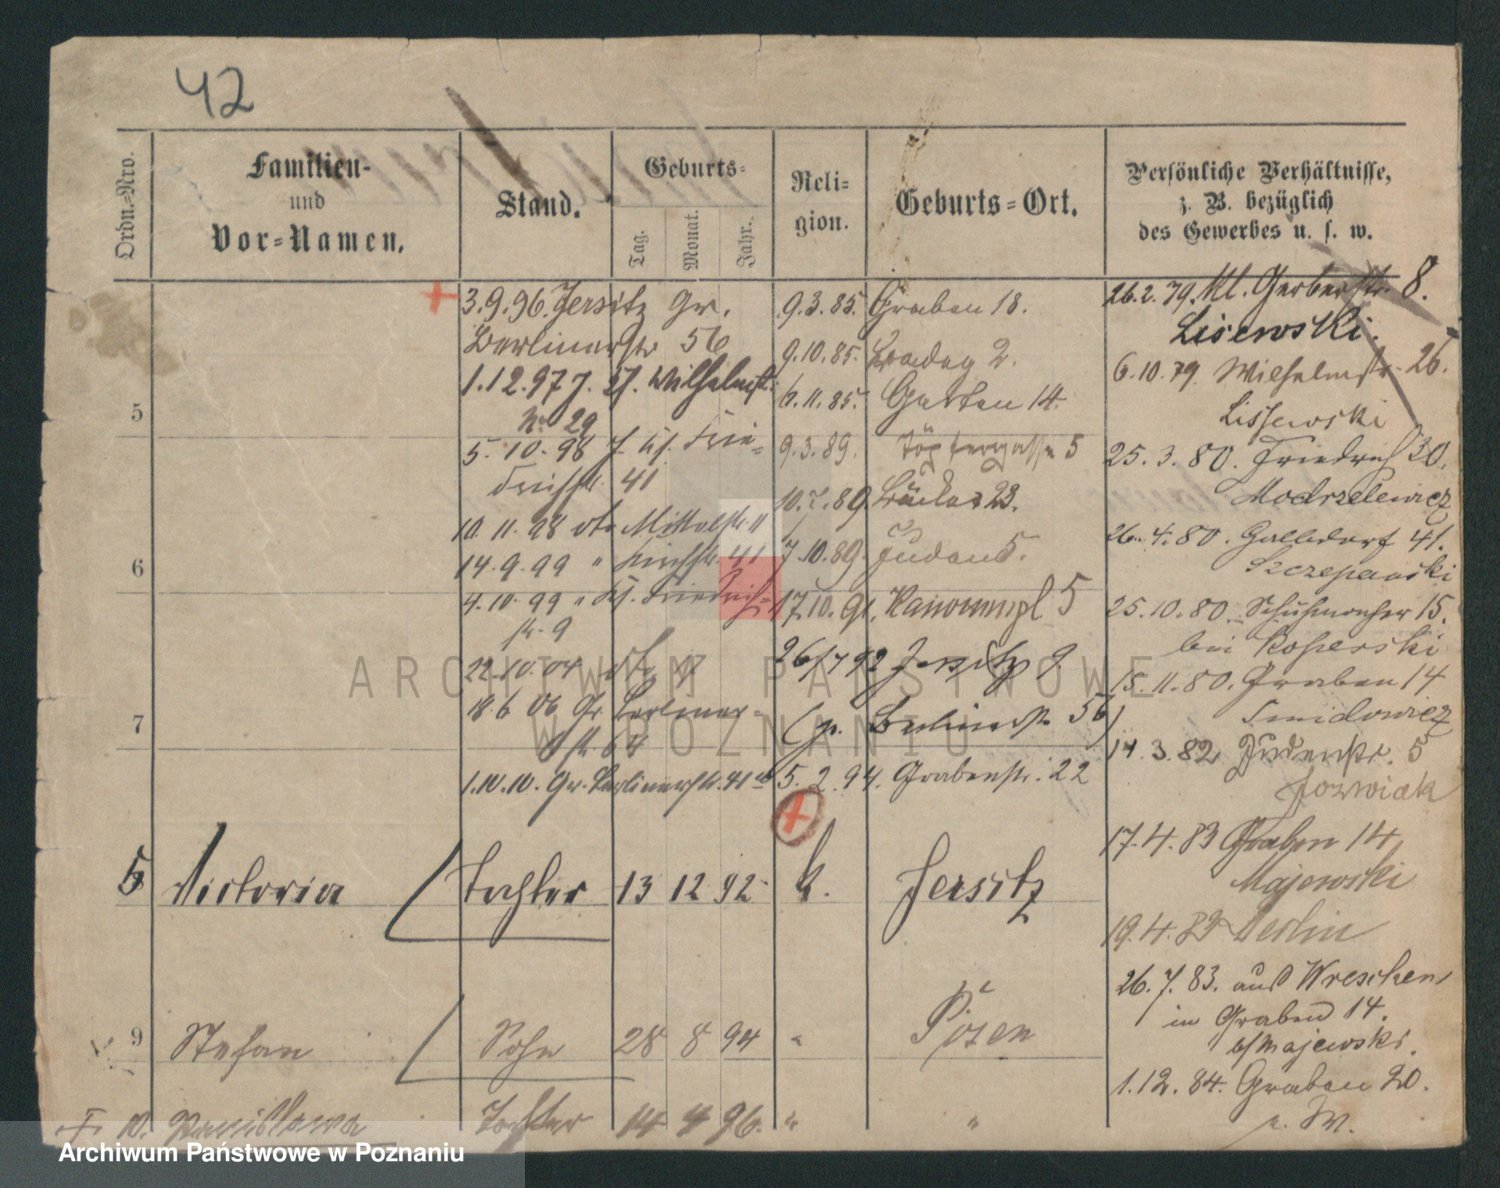 42
Ordn.-Nro.
Familien-
und
Vor-Namen.
Stand.
Geburts-
Tag.
Monat.
Jahr.
Reli-
gion.
Geburts-Ort.
Persönliche Verhältnisse,
z. B. bezüglich
des Gewerbes u. s. w.
5
6
7
3.9.96. Jersitz Gr.
Berlinerstr 56
1.12.97 J. Wilhelmstr.
No 29
5.10.98 J.
41
10.11.98 Mittelstr 11
14.9.99 " Kirchstr. 41
4.10.99 " Friedrich-
str. 9
22.10.04
18.6.06 Gr Berliner-
str 67
1.10.10. Gr. Berlinerstr. 41
9.3.85. Graben 18.
9.10.85. 2.
6.11.85. Garten 14.
9.3.89. Töpfergasse 5
10.7.89. 23.
7.10.89. Juden 5.
17.10.91. Kanonenpl 5
26/7 92 Jersitz 9
(gr. Berlinerstr. 56)
5.2.94. Grabenstr. 22
26.2.79. Kl. Gerberstr. 8.
Lisewski.
6.10.79. Wilhelmstr. 26.
Lissewski
25.3.80. Friedrich 30.
Modrzelewicz
26.4.80. 41.
Szczepanski
25.10.80. Schuhmacher 15.
bei Koperski
15.11.80. Graben 14
Smidowicz
14.3.82 Judenstr. 5
Jozwiak
17.4.83 Graben 14
Majewski
19.4.83 Berlin
26.7.83. aus Wreschen
in Graben 14.
b/Majewski.
1.12.84. Graben 20.
b. W.
Victoria Tochter 13 12 92 k. Jersitz
9 Stefan Sohn 28 8 94 " Posen
10. Tochter 14 4 96. " "
ARCHIWUM PAŃSTWOWE
W POZNANIU
Archiwum Państwowe w Poznaniu